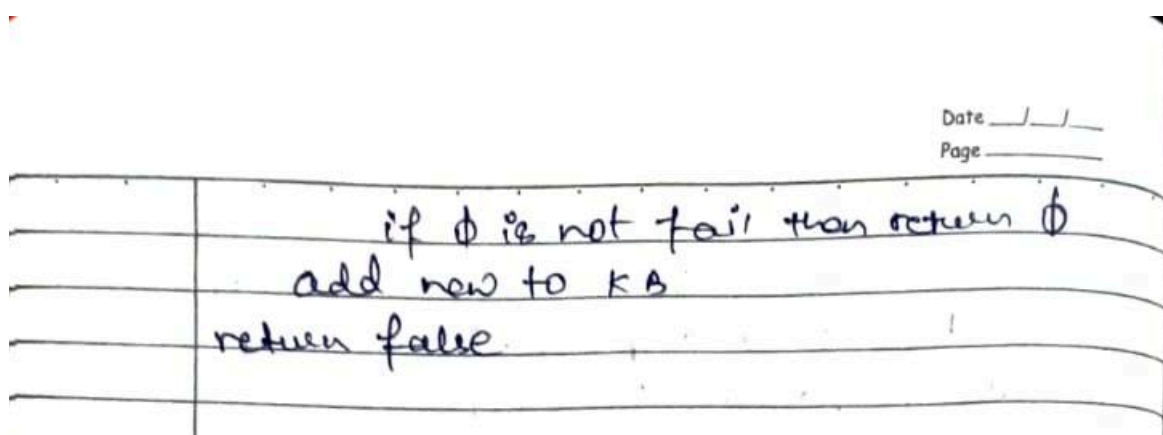 Date __/__/__
Page ______
if ϕ is not fail then return ϕ
add new to KB
return false